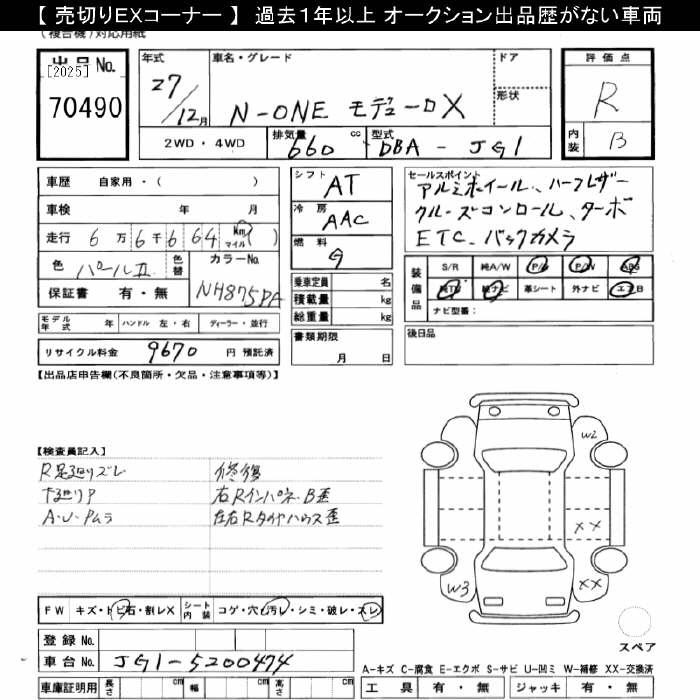 【 売切りEXコーナー 】 過去1年以上 オークション出品歴がない車両
(複合機)対応用紙
出品 No.
[2025]
70490
年式
27/12月
車名・グレード
N-ONE モデューロX
ドア
形状
評価点
R
内装
B
2WD ・ 4WD
排気量
660 cc
型式
DBA - JG1
車歴 自家用・( )
車検 年 月
走行 6万6千664 km マイル ( )
色 パールII 色替 カラーNo. NH875PA
保証書 有・無
モデル年式 年 ハンドル 左・右 ディーラー・並行
リサイクル料金 9670 円 預託済
シフト AT
冷房 AAC
燃料 G
乗車定員 名
積載量 kg
総重量 kg
書類期限
月 日
セールスポイント
アルミホイール、ハーフレザー
クルーズコントロール、ターボ
ETC、バックカメラ
装備品
S/R 純A/W P/S P/W ABS
純TV 純ナビ 革シート 外ナビ エアB
ナビ型番:
後日品
【出品店申告欄(不良箇所・欠品・注意事項等)】
【検査員記入】
R足廻りズレ 修復
下廻りP 右RインパネB歪
A・U・Pムラ 左右Rタイヤハウス歪
W2
XX
XX
W3
FW キズ・トビ石・割レX シート内装 コゲ・穴・汚レ・シミ・破レ・スレ
登録 No.
車台 No. JG1-5200474
車庫証明用 長さ cm 幅 cm 高さ cm
スペア
A-キズ C-腐食 E-エクボ S-サビ U-凹ミ W-補修 XX-交換済
工具 有・無 ジャッキ 有・無